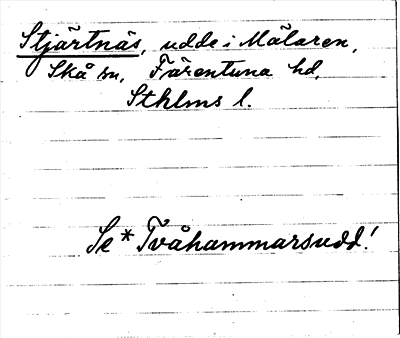 Stjärtnäs, udde i Mälaren,
Skå sn, Färentuna hd,
Sthlms l.
Se *Tvåhammarsudd!